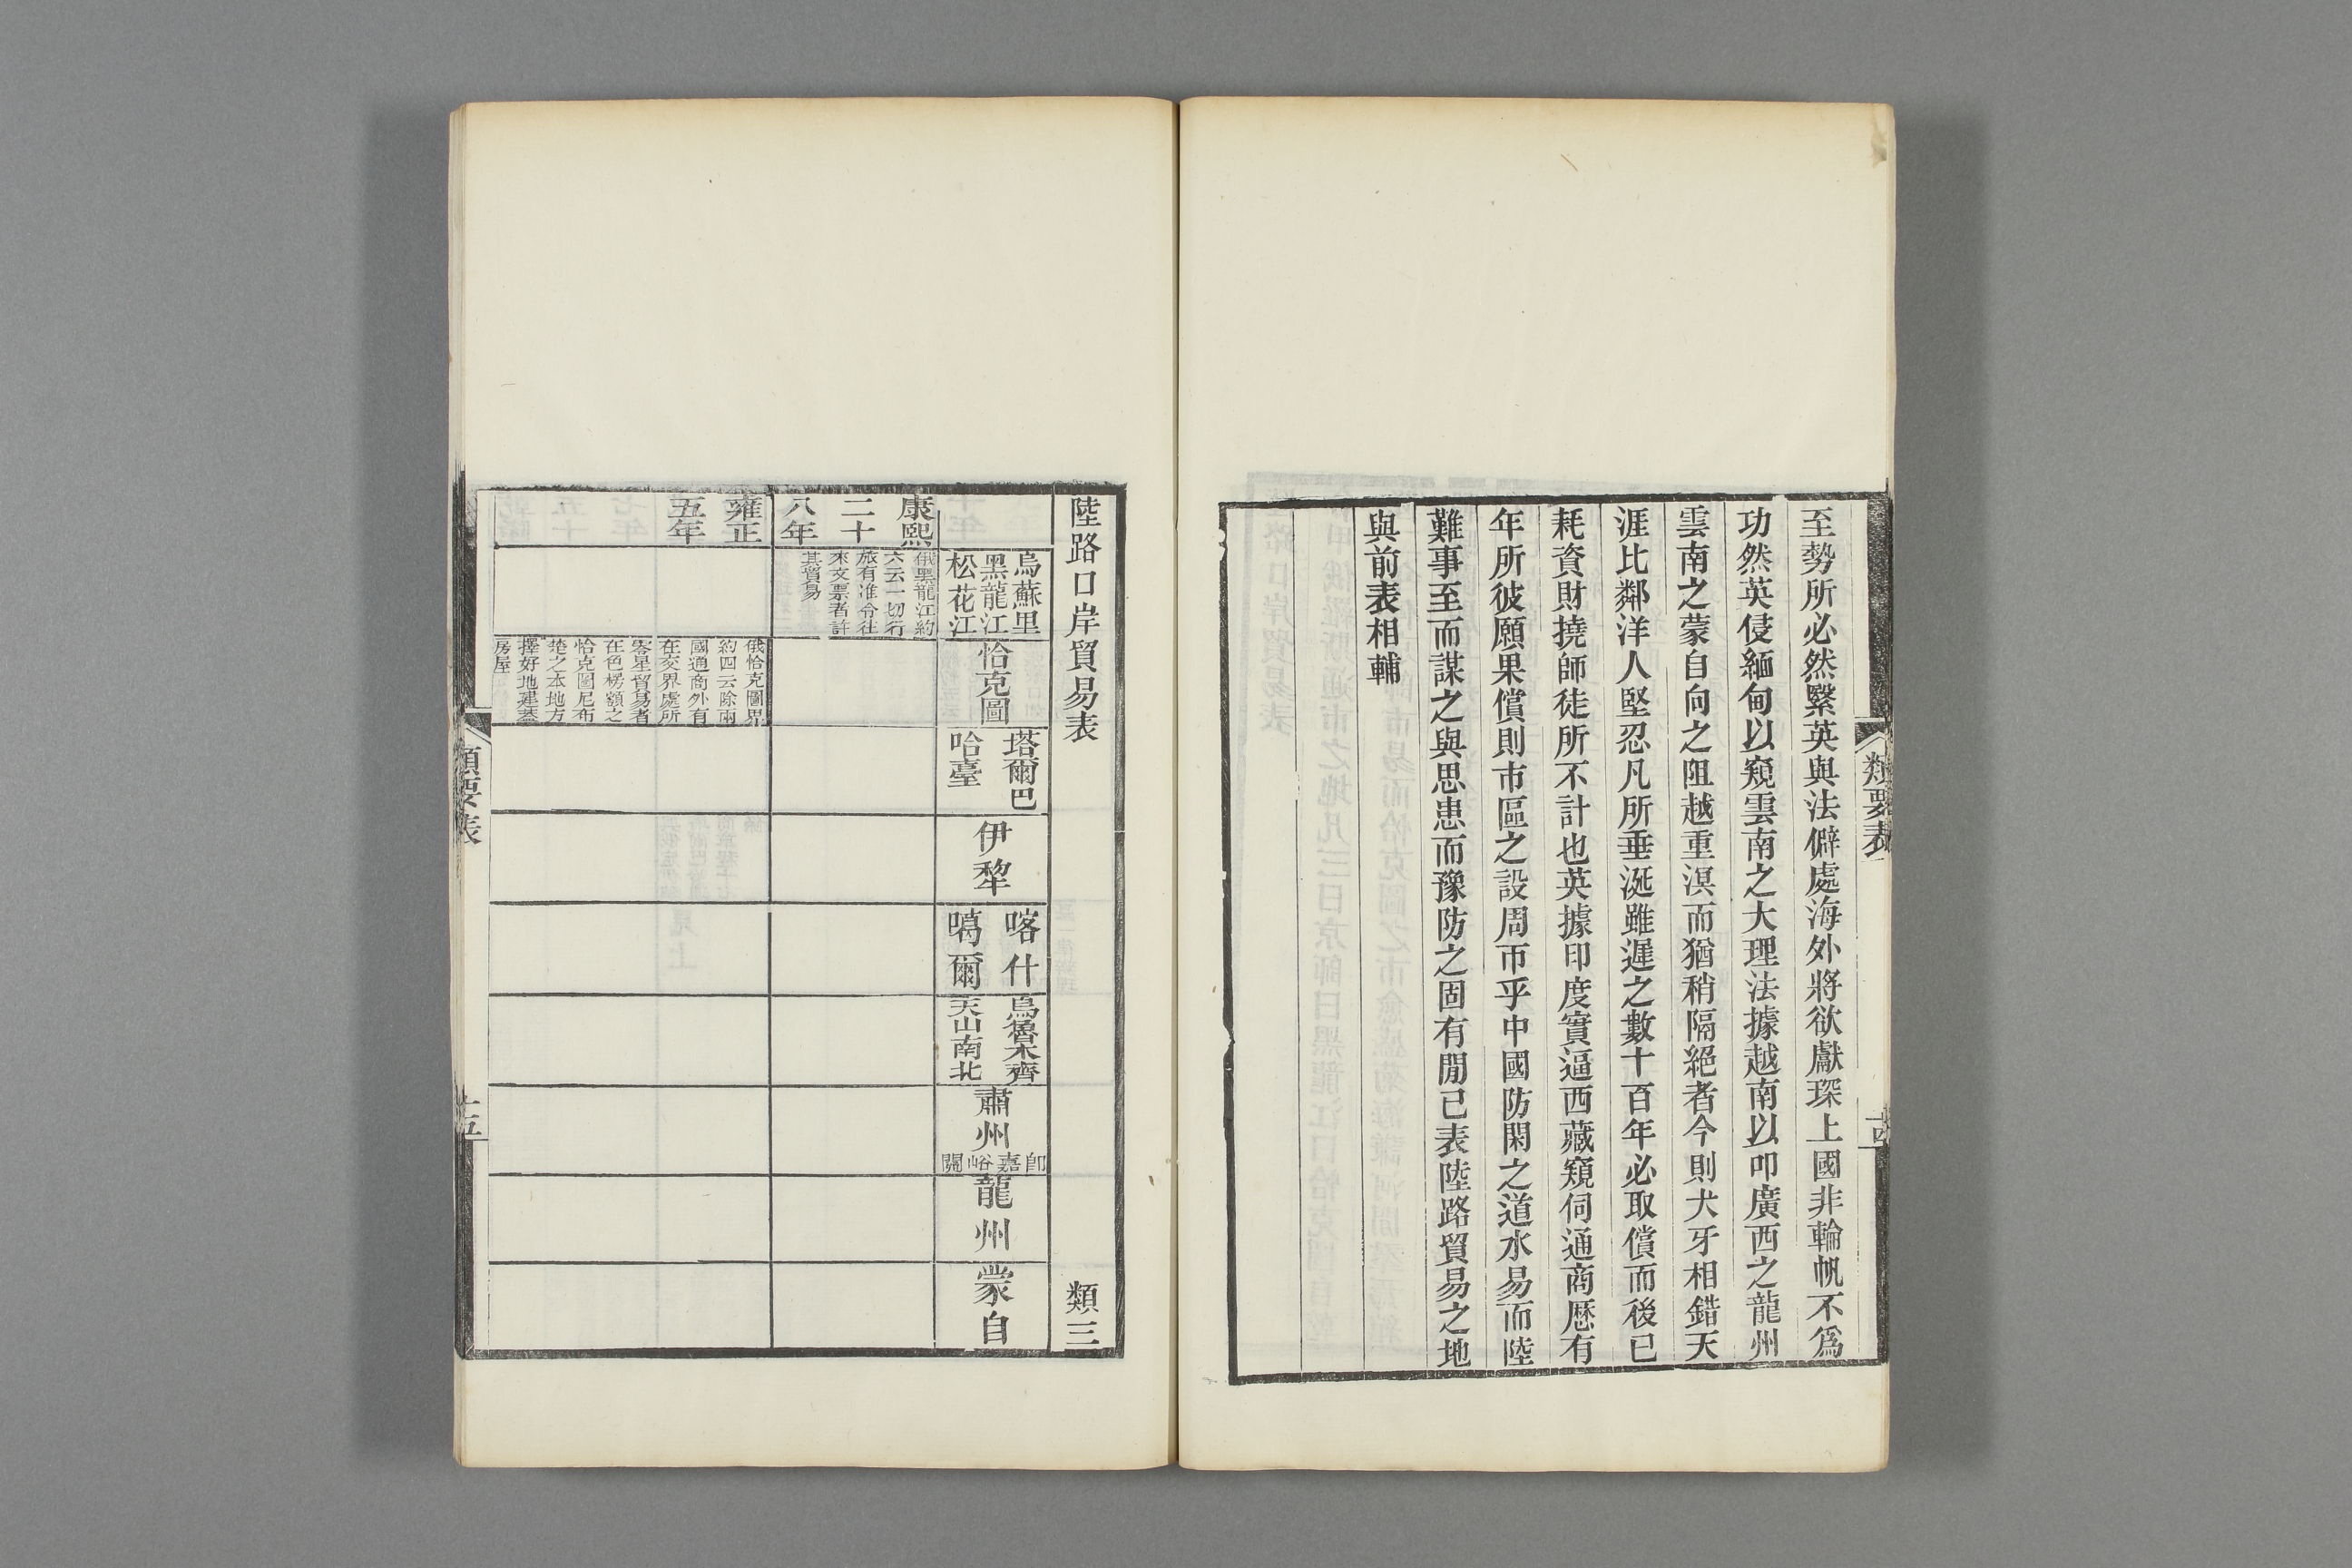 至勢所必然緊英與法僻處海外將欲獻琛上國非輪帆不爲
功然英侵緬甸以窺雲南之大理法據越南以叩廣西之龍州
雲南之蒙自向之阻越重溟而猶稍隔絕者今則犬牙相錯天
涯比鄰洋人堅忍凡所垂涎雖遲之數十百年必取償而後已
耗資財撓師徒所不計也英據印度實逼西藏窺伺通商歷有
年所彼願果償則市區之設周帀乎中國防閑之道水易而陸
難事至而謀之與思患而豫防之固有閒已表陸路貿易之地
與前表相輔
類要表
十四
陸路口岸貿易表
類三
烏蘇里
黑龍江
松花江
恰克圖
塔爾巴
哈臺
伊犂
喀什
噶爾
烏魯木齊
天山南北
肅州
卽嘉峪關
龍州
蒙自
康熙
二十
八年
俄黑龍江約
六云一切行
旅有准令往
來文票者許
其貿易
雍正
五年
俄恰克圖界
約四云除兩
國通商外有
在交界處所
零星貿易者
在色楞額之
恰克圖尼布
楚之本地方
擇好地建蓋
房屋
類要表
十五